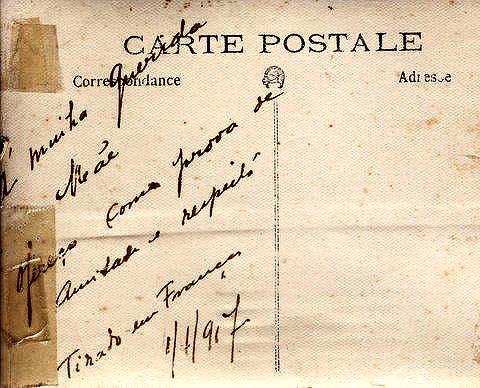 CARTE POSTALE
Correspondance
Adresse
Á minha querida
Mãe
ofereço como prova de
amisade e respeito
Tirado em França
1/1/917